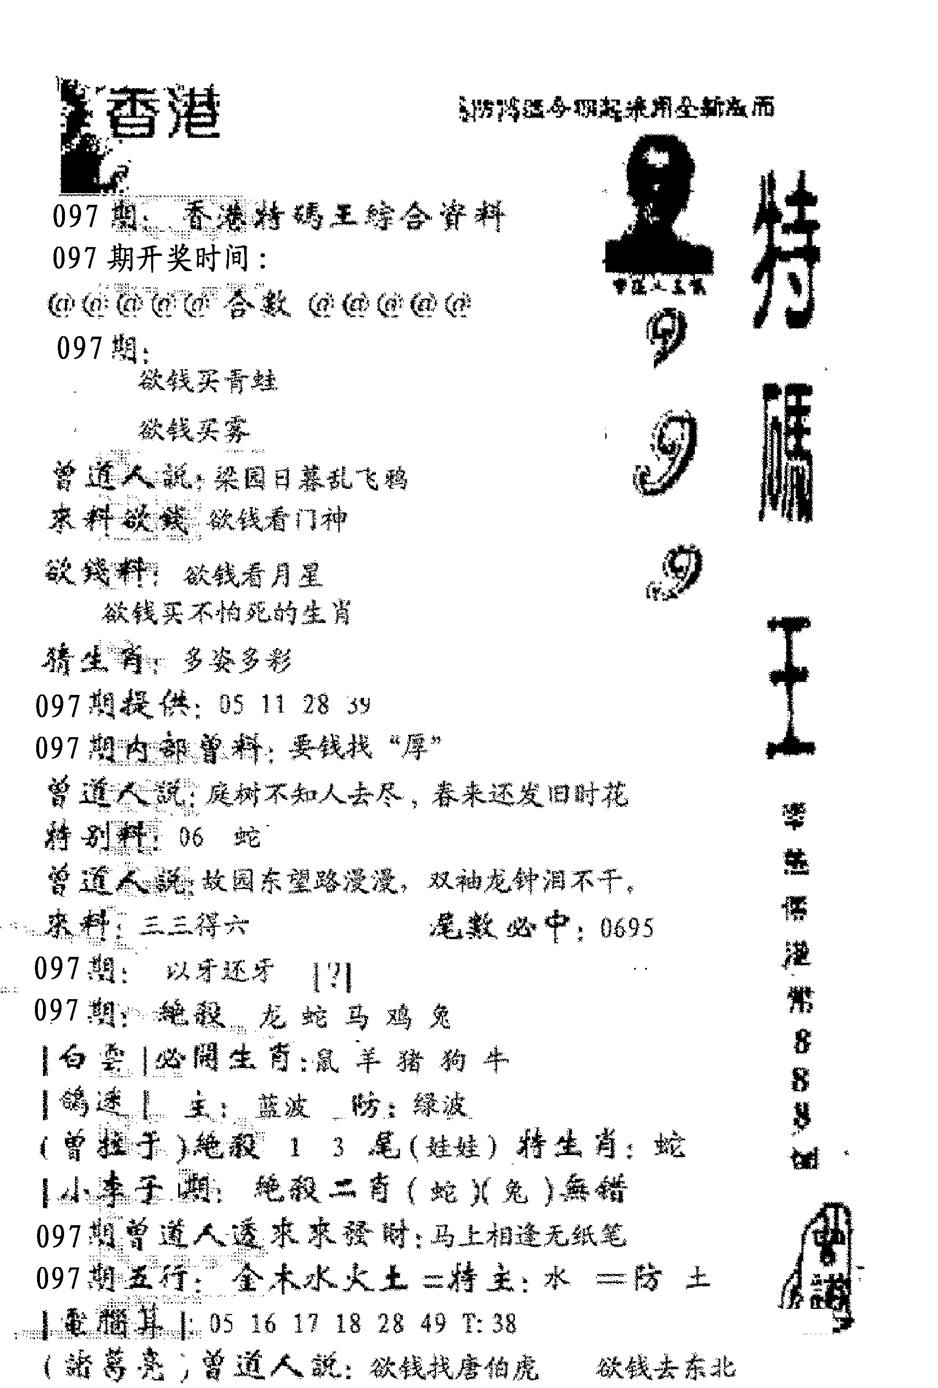 香港
防 今期起采用全新版面
097期：香港特碼王綜合資料
097 期开奖时间：
@@@@@ 合数 @@@@@
097期：
欲钱买青蛙
欲钱买雾
曾道人説：梁园日暮乱飞鸦
來料欲錢 欲钱看门神
欲錢料：欲钱看月星
欲钱买不怕死的生肖
猜生肖：多姿多彩
097期提供：05 11 28 39
097期内部曾料：要钱找“厚”
曾道人説：庭树不知人去尽，春来还发旧时花
特别料：06 蛇
曾道人説：故园东望路漫漫，双袖龙钟泪不干。
來料：三三得六 尾数必中：0695
097期： 以牙还牙 |?|
097期：絶殺 龙 蛇 马 鸡 兔
|白雲|必開生肖：鼠 羊 猪 狗 牛
|鴿迷| 主：蓝波 防：绿波
(曾拉于)絶殺 1 3 尾(娃娃) 特生肖：蛇
|小李子|期：絶殺二肖(蛇)(兔)無錯
097期曾道人透來來發財：马上相逢无纸笔
097期五行：金木水火土=特主：水 =防 土
|電腦算|：05 16 17 18 28 49 T:38
(諸葛亮)曾道人説：欲钱找唐伯虎 欲钱去东北
9
9
9
特
碼
王
港
常
8
8
8